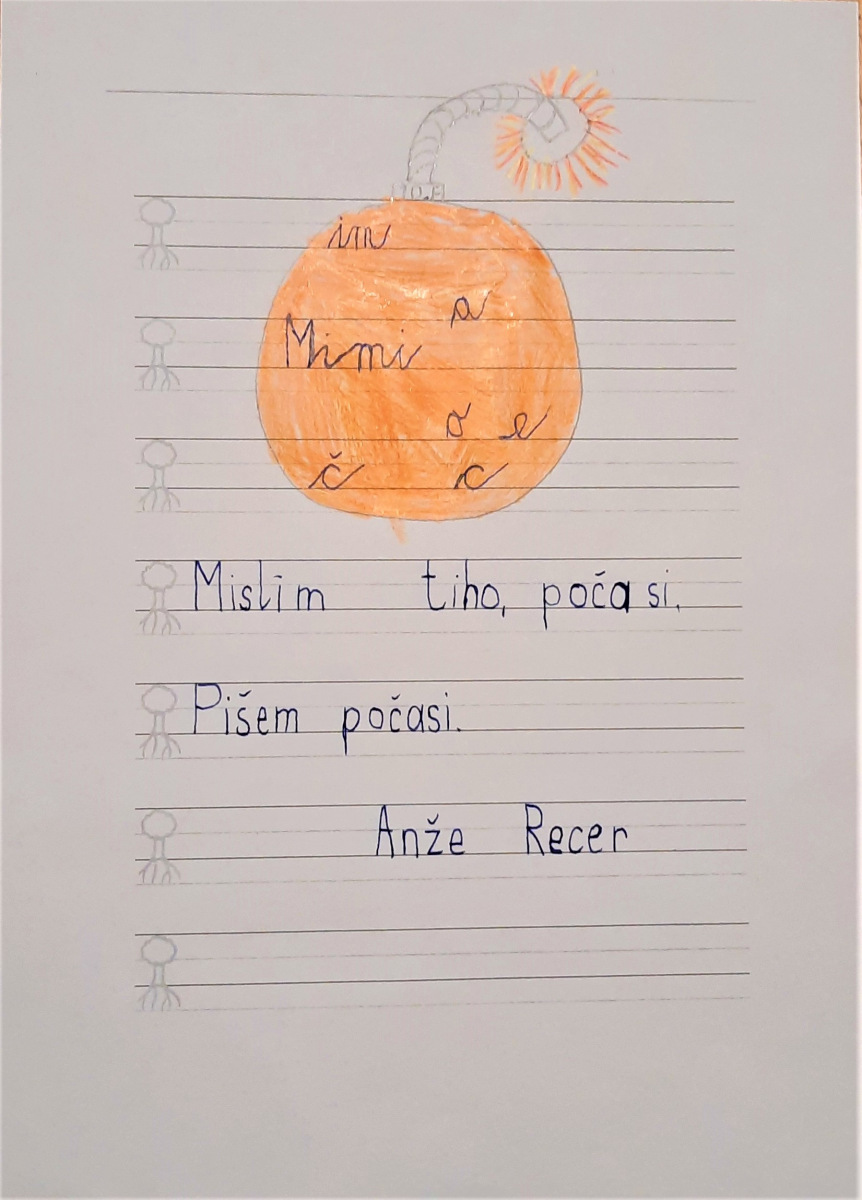 im
a
Mimi
o e
č c
Mislim tiho, počasi.
Pišem počasi.
Anže Recer